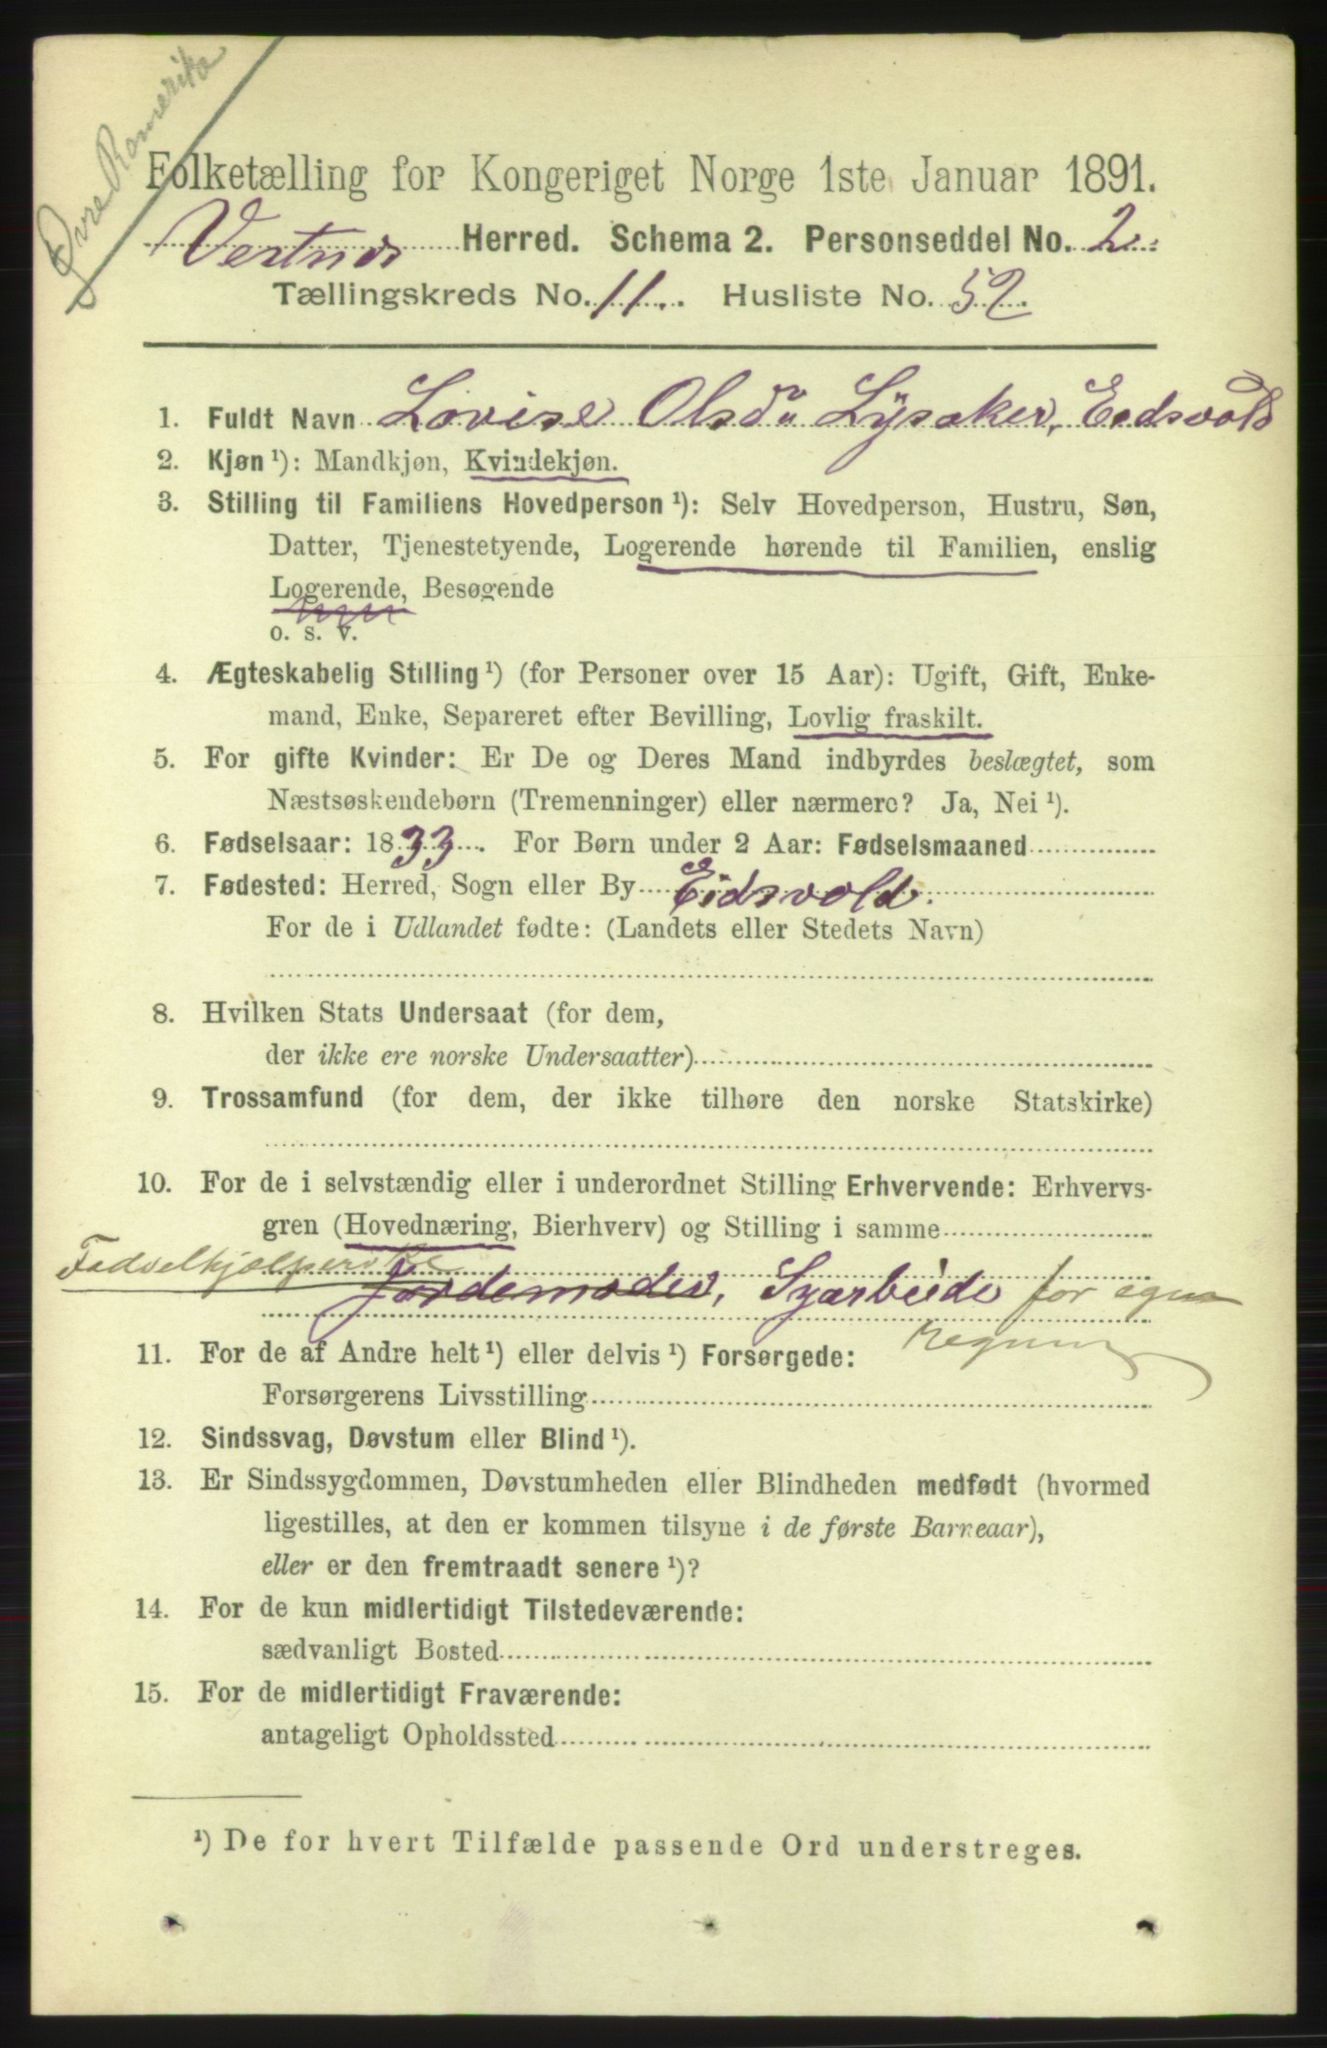 Øvre Romerike
Folketælling for Kongeriget Norge 1ste Januar 1891.
Vestnes Herred. Schema 2. Personseddel No. 2
Tællingskreds No. 11. Husliste No. 52
1. Fuldt Navn Lovise Olsdr Lysaker, Eidsvold
2. Kjøn ¹): Mandkjøn, Kvindekjøn.
3. Stilling til Familiens Hovedperson ¹): Selv Hovedperson, Hustru, Søn,
Datter, Tjenestetyende, Logerende hørende til Familien, enslig
Logerende, Besøgende
o. s. v.
4. Ægteskabelig Stilling ¹) (for Personer over 15 Aar): Ugift, Gift, Enke-
mand, Enke, Separeret efter Bevilling, Lovlig fraskilt.
5. For gifte Kvinder: Er De og Deres Mand indbyrdes beslægtet, som
Næstsøskendebørn (Tremenninger) eller nærmere? Ja, Nei ¹).
6. Fødselsaar: 1833. For Børn under 2 Aar: Fødselsmaaned
7. Fødested: Herred, Sogn eller By Eidsvold.
For de i Udlandet fødte: (Landets eller Stedets Navn)
8. Hvilken Stats Undersaat (for dem,
der ikke ere norske Undersaatter)
9. Trossamfund (for dem, der ikke tilhøre den norske Statskirke)
10. For de i selvstændig eller i underordnet Stilling Erhvervende: Erhvervs-
gren (Hovednæring, Bierhverv) og Stilling i samme
Fødselhjælperske
Jordemoder, Syarbeide for egen
Regning
11. For de af Andre helt ¹) eller delvis ¹) Forsørgede:
Forsørgerens Livsstilling
12. Sindssvag, Døvstum eller Blind ¹).
13. Er Sindssygdommen, Døvstumheden eller Blindheden medfødt (hvormed
ligestilles, at den er kommen tilsyne i de første Barneaar),
eller er den fremtraadt senere ¹)?
14. For de kun midlertidigt Tilstedeværende:
sædvanligt Bosted
15. For de midlertidigt Fraværende:
antageligt Opholdssted
¹) De for hvert Tilfælde passende Ord understreges.